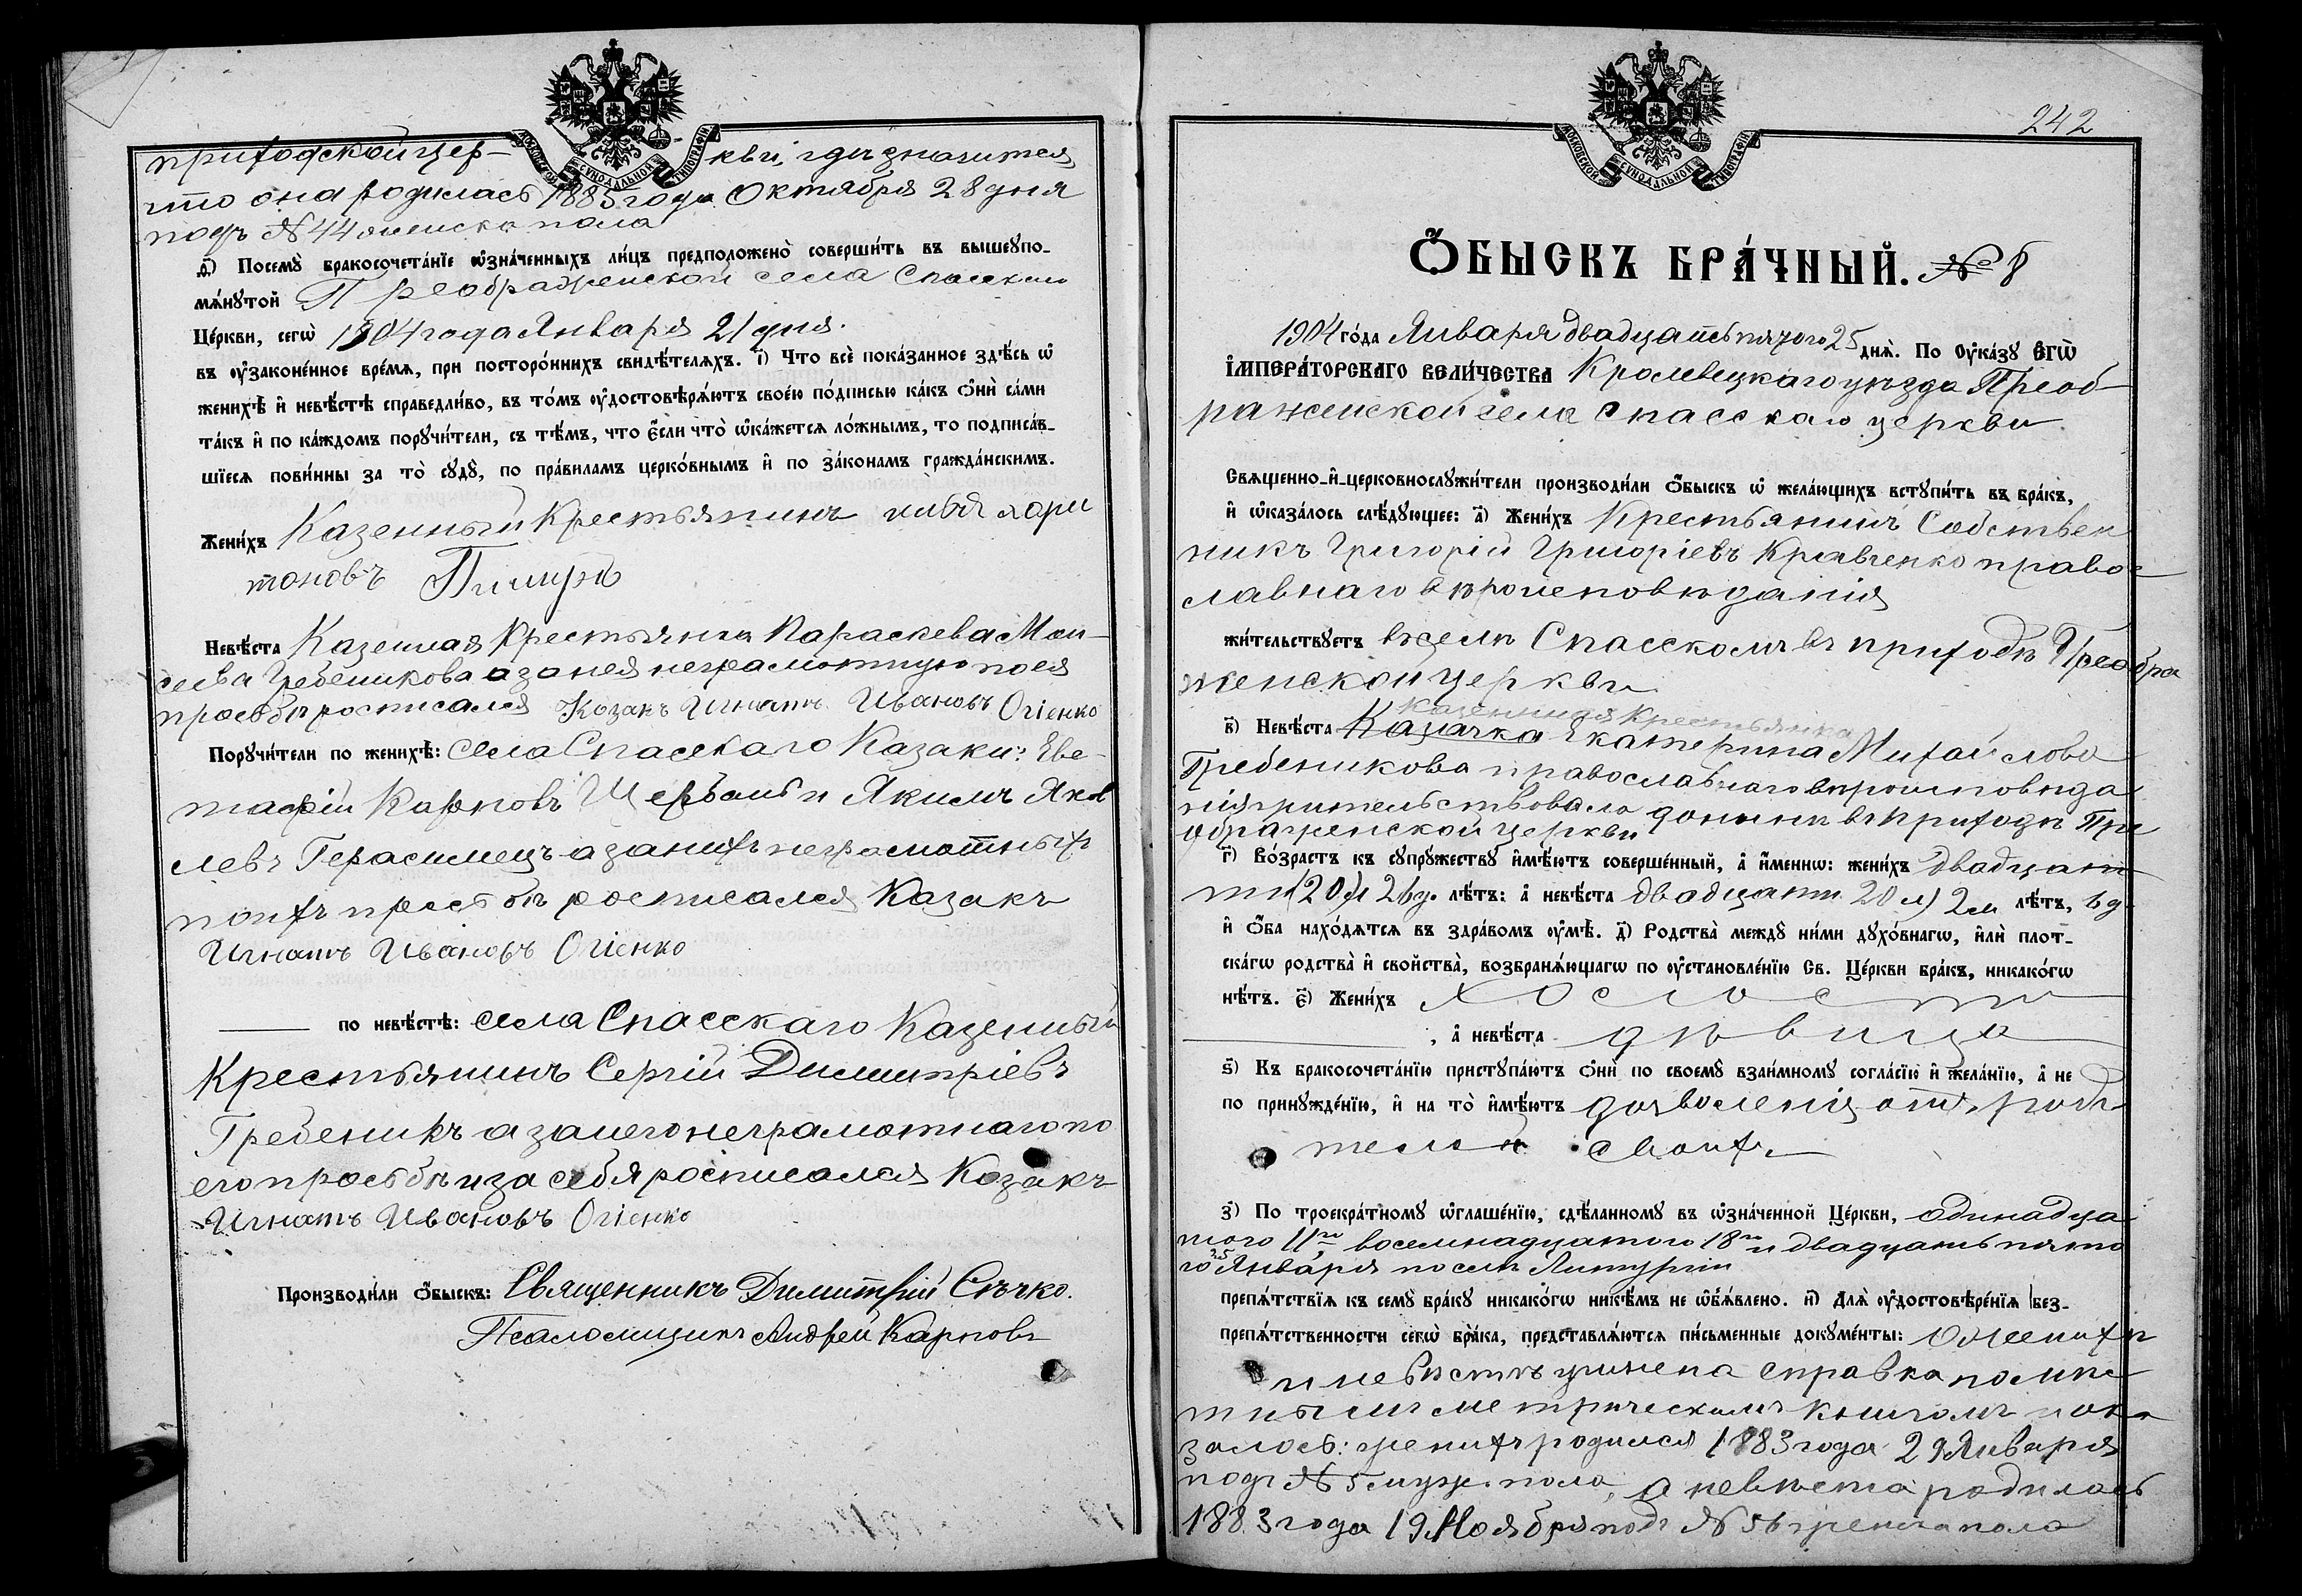 приходской цер- кви, гдѣ значится
что она родилась 1885 года Октября 28 дня
подъ № 44 женска пола
Ѳ҃) Посемꙋ̀ бракосочета́нїе ѡ҆зна́ченныхъ ли́цъ предположено̀ соверши́ть въ вышеꙋпо-
мѧ́нꙋтой Преображенской села Спасскаго
Це́ркви, сегѡ̀ 1904 года Января 21 дня.
въ ᲂу҆законе́нное вре́мѧ, при посторо́ннихъ свидѣ́телѧхъ. І҃) Что всѐ пока́занное здѣ́сь ѡ҆
женихѣ̀ и҆ невѣ́стѣ справедли́во, въ то́мъ ᲂу҆достовѣрѧ́ютъ свое́ю по́дписью ка́къ ѻ҆нѝ са́ми
та́къ и҆ по ка́ждомъ порꙋчи́тели, съ тѣ́мъ, что є҆́сли что̀ ѡ҆ка́жетсѧ ло́жнымъ, то подписа́в-
шїесѧ пови́нны за то̀ сꙋдꙋ̀, по пра́виламъ церко́внымъ и҆ по зако́намъ гражда́нскимъ.
Жени́хъ Казенный Крестьянинъ Хари
тоновъ
Невѣ́ста Казенная Крестьянка Параскева Мои-
сеева Гребеникова а за нея неграмотную по ея
прозьбѣ росписался Козакъ Игнатъ Ивановъ Огіенко
Порꙋчи́тели по женихѣ̀: Села Спасскаго Казаки: Еве-
тафій Карповъ Щербакъ и Якимъ Яков
левъ Герасимецъ а за нихъ неграмотныхъ
по ихъ прозьбѣ росписался Казакъ
Игнатъ Ивановъ Огіенко
по невѣ́стѣ: села Спасскаго Казенный
Крестьянинъ Сергій Димитріевъ
Гребеникъ а за него неграмотнаго по
его прозьбѣ и за себя росписался Козакъ
Игнатъ Ивановъ Огіенко
Производи́ли ѻ҆́быскъ: Священникъ Димитрій Сѣчко.
Псаломщикъ Андрей Карповъ
МОСКОВСКОЙ СѴНОДАЛЬНОЙ ТИПОГРАФІИ
242
Ѻ҆́БЫСКЪ БРА́ЧНЫЙ. № 8
1904 го́да Января двадцать пятого 25 днѧ̀. По ᲂу҆ка́зꙋ Є҆ГѠ̀
І҆МПЕРА́ТОРСКАГО ВЕЛИ́ЧЕСТВА Кролевецкаго уѣзда Преоб-
раженской села Спасскаго церкви
Свѧщенно-и҆-церковнослꙋжи́тели производи́ли ѻ҆́быскъ ѡ҆ жела́ющихъ встꙋпи́ть въ бра́къ,
и҆ ѡ҆каза́лось слѣ́дꙋющее: а҃) Жени́хъ Крестьянинъ Собствен
никъ Григорій Григоріевъ Кравченко право-
славнаго вѣроисповѣданія
жи́тельствꙋетъ въ селѣ Спасскомъ въ приходѣ Преобра
женской церкви
казенная крестьянка
в҃) Невѣ́ста Казачка Екатерина Михайлова
Гребеникова православнаго вѣроисповѣда
нія жительствовала донынѣ въ приходѣ Пре
ображенской церкви
г҃) Во́зрастъ къ сꙋпрꙋ́жествꙋ и҆мѣ́ютъ соверше́нный, а҆ и҆́меннѡ: жени́хъ двадцат
лѣ́тъ: а҆ невѣ́ста двадцати 20 и 2 м лѣ́тъ,
и҆ ѻ҆́ба нахо́дѧтсѧ въ здра́вомъ ᲂу҆мѣ̀. д҃) Родства̀ междꙋ ни́ми дꙋхо́внагѡ, и҆лѝ плот-
ска́гѡ родства̀ и҆ свойства̀, возбранѧ́ющагѡ по ᲂу҆становле́нїю Св. Це́ркви бра́къ, никако́гѡ
нѣ́тъ. є҃) Жени́хъ холостъ
, а҆ невѣ́ста дѣвица
ѕ҃) Къ бракосочета́нїю пристꙋпа́ютъ ѻ҆нѝ по своемꙋ̀ взаи́мномꙋ согла́сїю и҆ жела́нїю, а҆ не
по принꙋжде́нїю, и҆ на то̀ и҆мѣ́ютъ дозволеніе отъ роди
телей своихъ
з҃) По троекра́тномꙋ ѡ҆глаше́нїю, сдѣ́ланномꙋ въ ѡ҆зна́ченной Це́ркви, одинадца
того 11го, восемнадцатого 18го и двадцать пято
го 25 Января послѣ Литургіи
препѧ́тствїѧ къ семꙋ̀ бра́кꙋ никако́гѡ никѣ́мъ не ѡ҆б̾ѧ́влено. и҃) Длѧ̀ ᲂу҆достовѣре́нїѧ без-
препѧ́тственности сегѡ̀ бра́ка, представлѧ́ютсѧ пи́сьменные докꙋме́нты: О женихѣ
и невѣстѣ учинена справка по мѣс
тнымъ метрическимъ книгамъ и ока
залось: женихъ родился 1883 года 29 Января
подъ № 5 муж. пола, а невѣста родилась
1883 года 19 Ноября подъ № 56 женска пола
МОСКОВСКОЙ СѴНОДАЛЬНОЙ ТИПОГРАФІИ